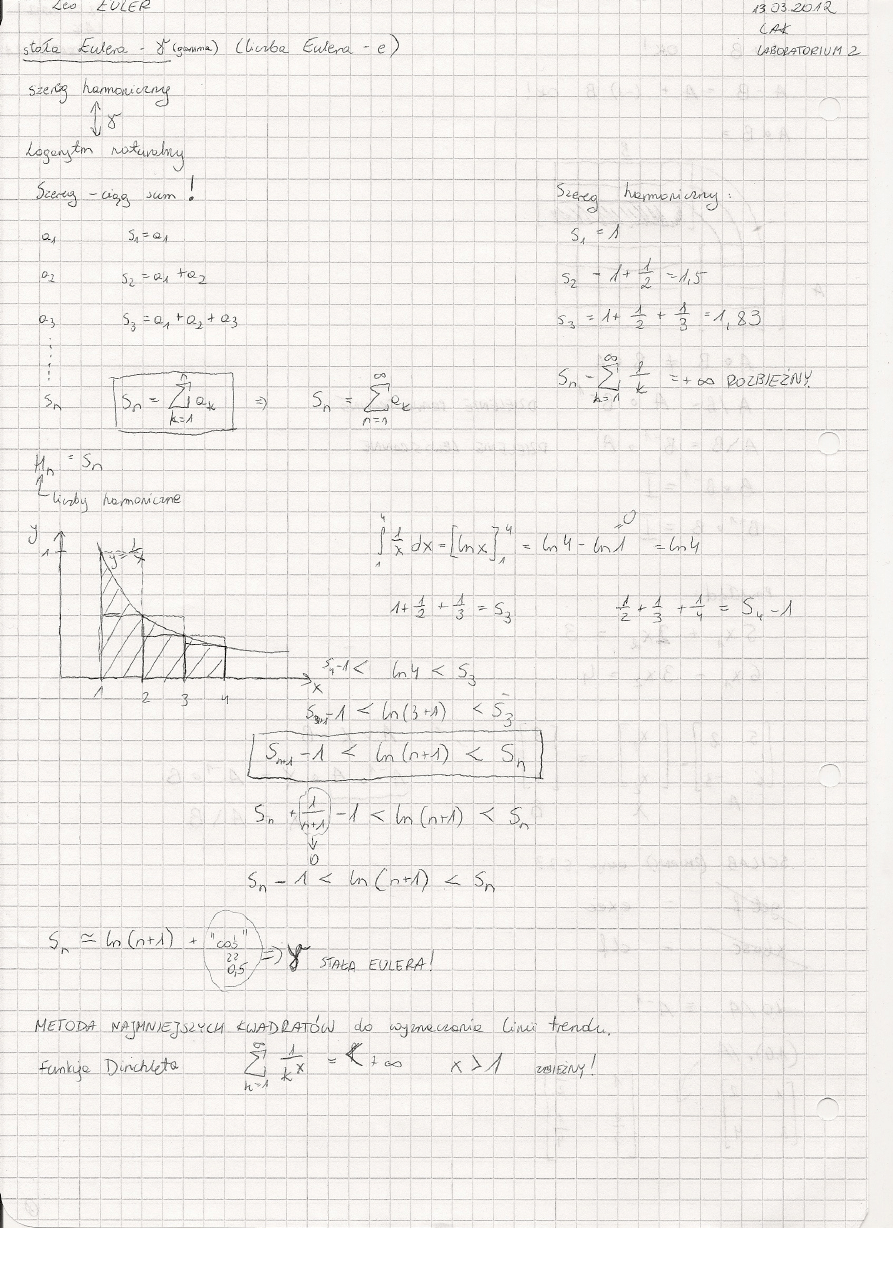 Leo EULER
13.03.2012
LAK
LABORATORIUM 2
stała Eulera - γ (gamma) (liczba Eulera - e)
szereg harmoniczny
↕ γ
Logarytm naturalny
Szereg - ciąg sum!
a1 S1 = a1
a2 S2 = a1 + a2
a3 S3 = a1 + a2 + a3
Sn Sn = ∑_{k=1}^{n} ak => Sn = ∑_{n=1}^{∞} ak
Szereg harmoniczny:
S1 = 1
S2 = 1 + 1/2 = 1,5
S3 = 1 + 1/2 + 1/3 = 1,83
Sn = ∑_{k=1}^{∞} 1/k = +∞ ROZBIEŻNY.
Hn = Sn
liczby harmoniczne
y
1
y = 1/x
1 2 3 4 x
∫_1^4 1/x dx = [ln x]_1^4 = ln4 - ln1 = ln4
= 0
1 + 1/2 + 1/3 = S3 1/2 + 1/3 + 1/4 = S4 - 1
S4 - 1 < ln4 < S3
S3+1 - 1 < ln(3+1) < S3
Sn+1 - 1 < ln(n+1) < Sn
Sn + 1/(n+1) - 1 < ln(n+1) < Sn
↓
0
Sn - 1 < ln(n+1) < Sn
Sn ≃ ln(n+1) + "coś" => γ STAŁA EULERA!
≈
0,5
METODA NAJMNIEJSZYCH KWADRATÓW do wyznaczania linii trendu.
Funkcja Dirichleta ∑_{k=1}^{∞} 1/k^x = < +∞ x > 1 ZBIEŻNY!